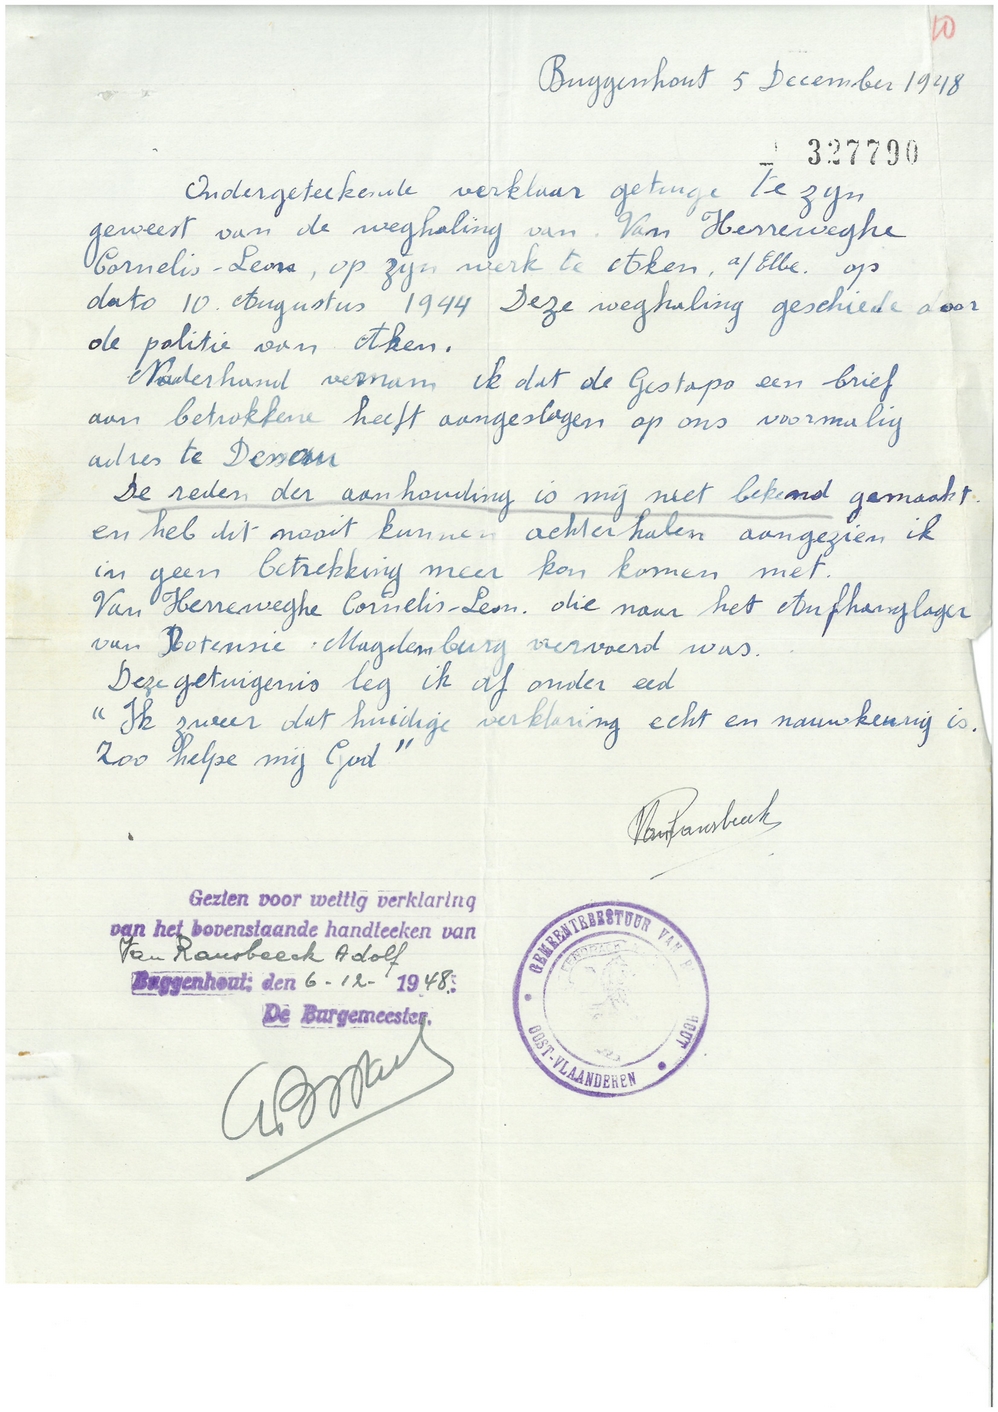 10
Buggenhout 5 December 1948
327790
Ondergeteekende verklaar getuige te zyn
geweest van de weghaling van. Van Herreweghe
Cornelis-Leon, op zyn werk te Aken, a/Elbe. op
dato 10. Augustus 1944 Deze weghaling geschiede door
de politie van Aken.
Naderhand vernam ik dat de Gestapo een brief
aan betrokkene heeft aangeslagen op ons voormalig
adres te Dessau
De reden der aanhouding is mij niet bekend gemaakt.
en heb dit nooit kunnen achterhalen aangezien ik
in geen betrekking meer kon komen met.
Van Herreweghe Cornelis-Leon. die naar het Aufhanglager
van Rotensie - Magdenburg vervoerd was.
Deze getuigenis leg ik af onder eed
"Ik zweer dat huidige verklaring echt en nauwkeurig is.
Zoo helpe mij God"
Van Ransbeeck
Gezien voor wettig verklaring
van het bovenstaande handteeken van
Van Ransbeeck Adolf
Buggenhout; den 6-12- 1948.
De Burgemeester,
GEMEENTEBESTUUR VAN B HOUT
OOST-VLAANDEREN